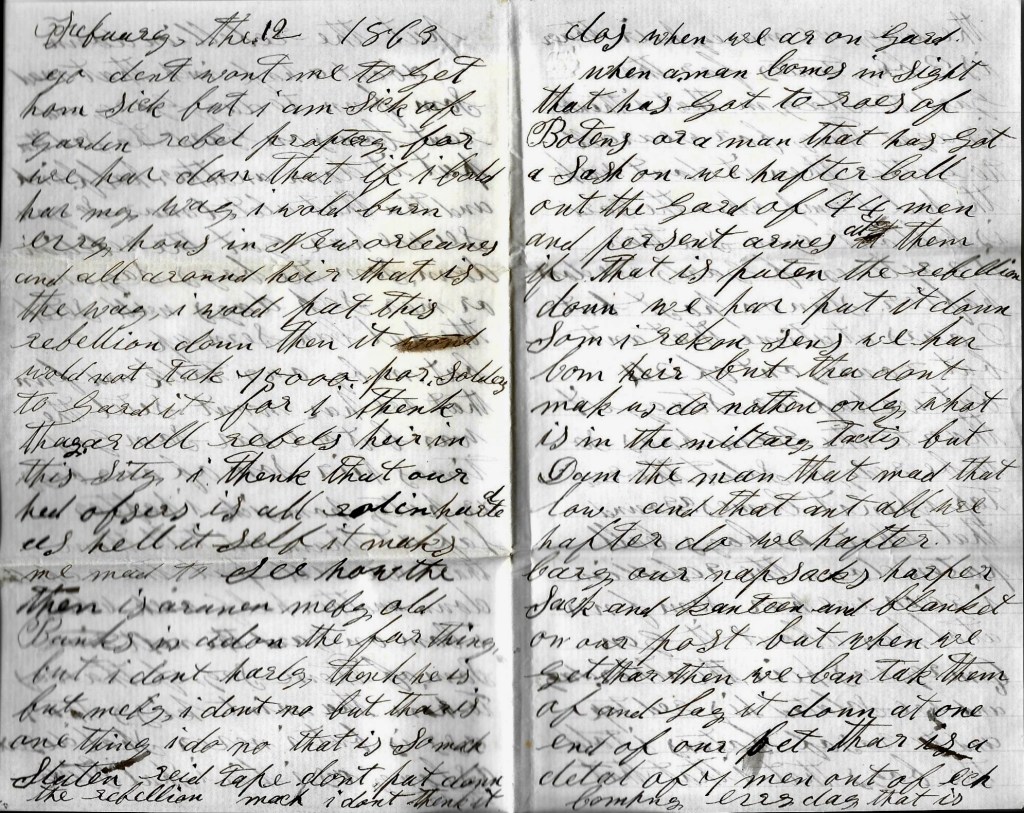 Febuarg the 12 1863
yo dont wont me to get
hom sick but i am sick of
garden rebel proprterg for
we har don that if i cold
har mg wag i wold burn
errg hous in New orleanes
and all around heir that is
the wag i wold put this
rebellion doun then it
wold not tak 70000 por solders
to gard it for i thenk
thag ar all rebels heir in
this sitg i thenk that our
hed ofsers is all rotin harted
as hell it self it maks
me mad to see how the
then is arunen mebg old
Banks is adon the far thing
but i dont harlg thenk he is
but mebg i dont no but thar is
one thing i do no that is so mak
reid tape dont put doun
the rebellion mach i dont thenk it
dos when we ar on gard.
when a man comes in sight
that has got to roes of
Botens or a man that has got
a sash on we hafter call
out the gard of 44 men
and persent armes at them
if that is puten the rebellion
doun we har put it doun
som i rekon sens we har
com heir but tha dont
mak us do nothen onlg what
is in the miltarg tactis but
Dam the man that mad that
low and that ant all we
hafter do we hafter
carig our napsacks harper
sack and kanteen and blanket
on our post but when we
get thar then we can tak them
of and lag it doun at one
end of our bet thar is a
detal of 7 men out of ech
compng errg dag that is